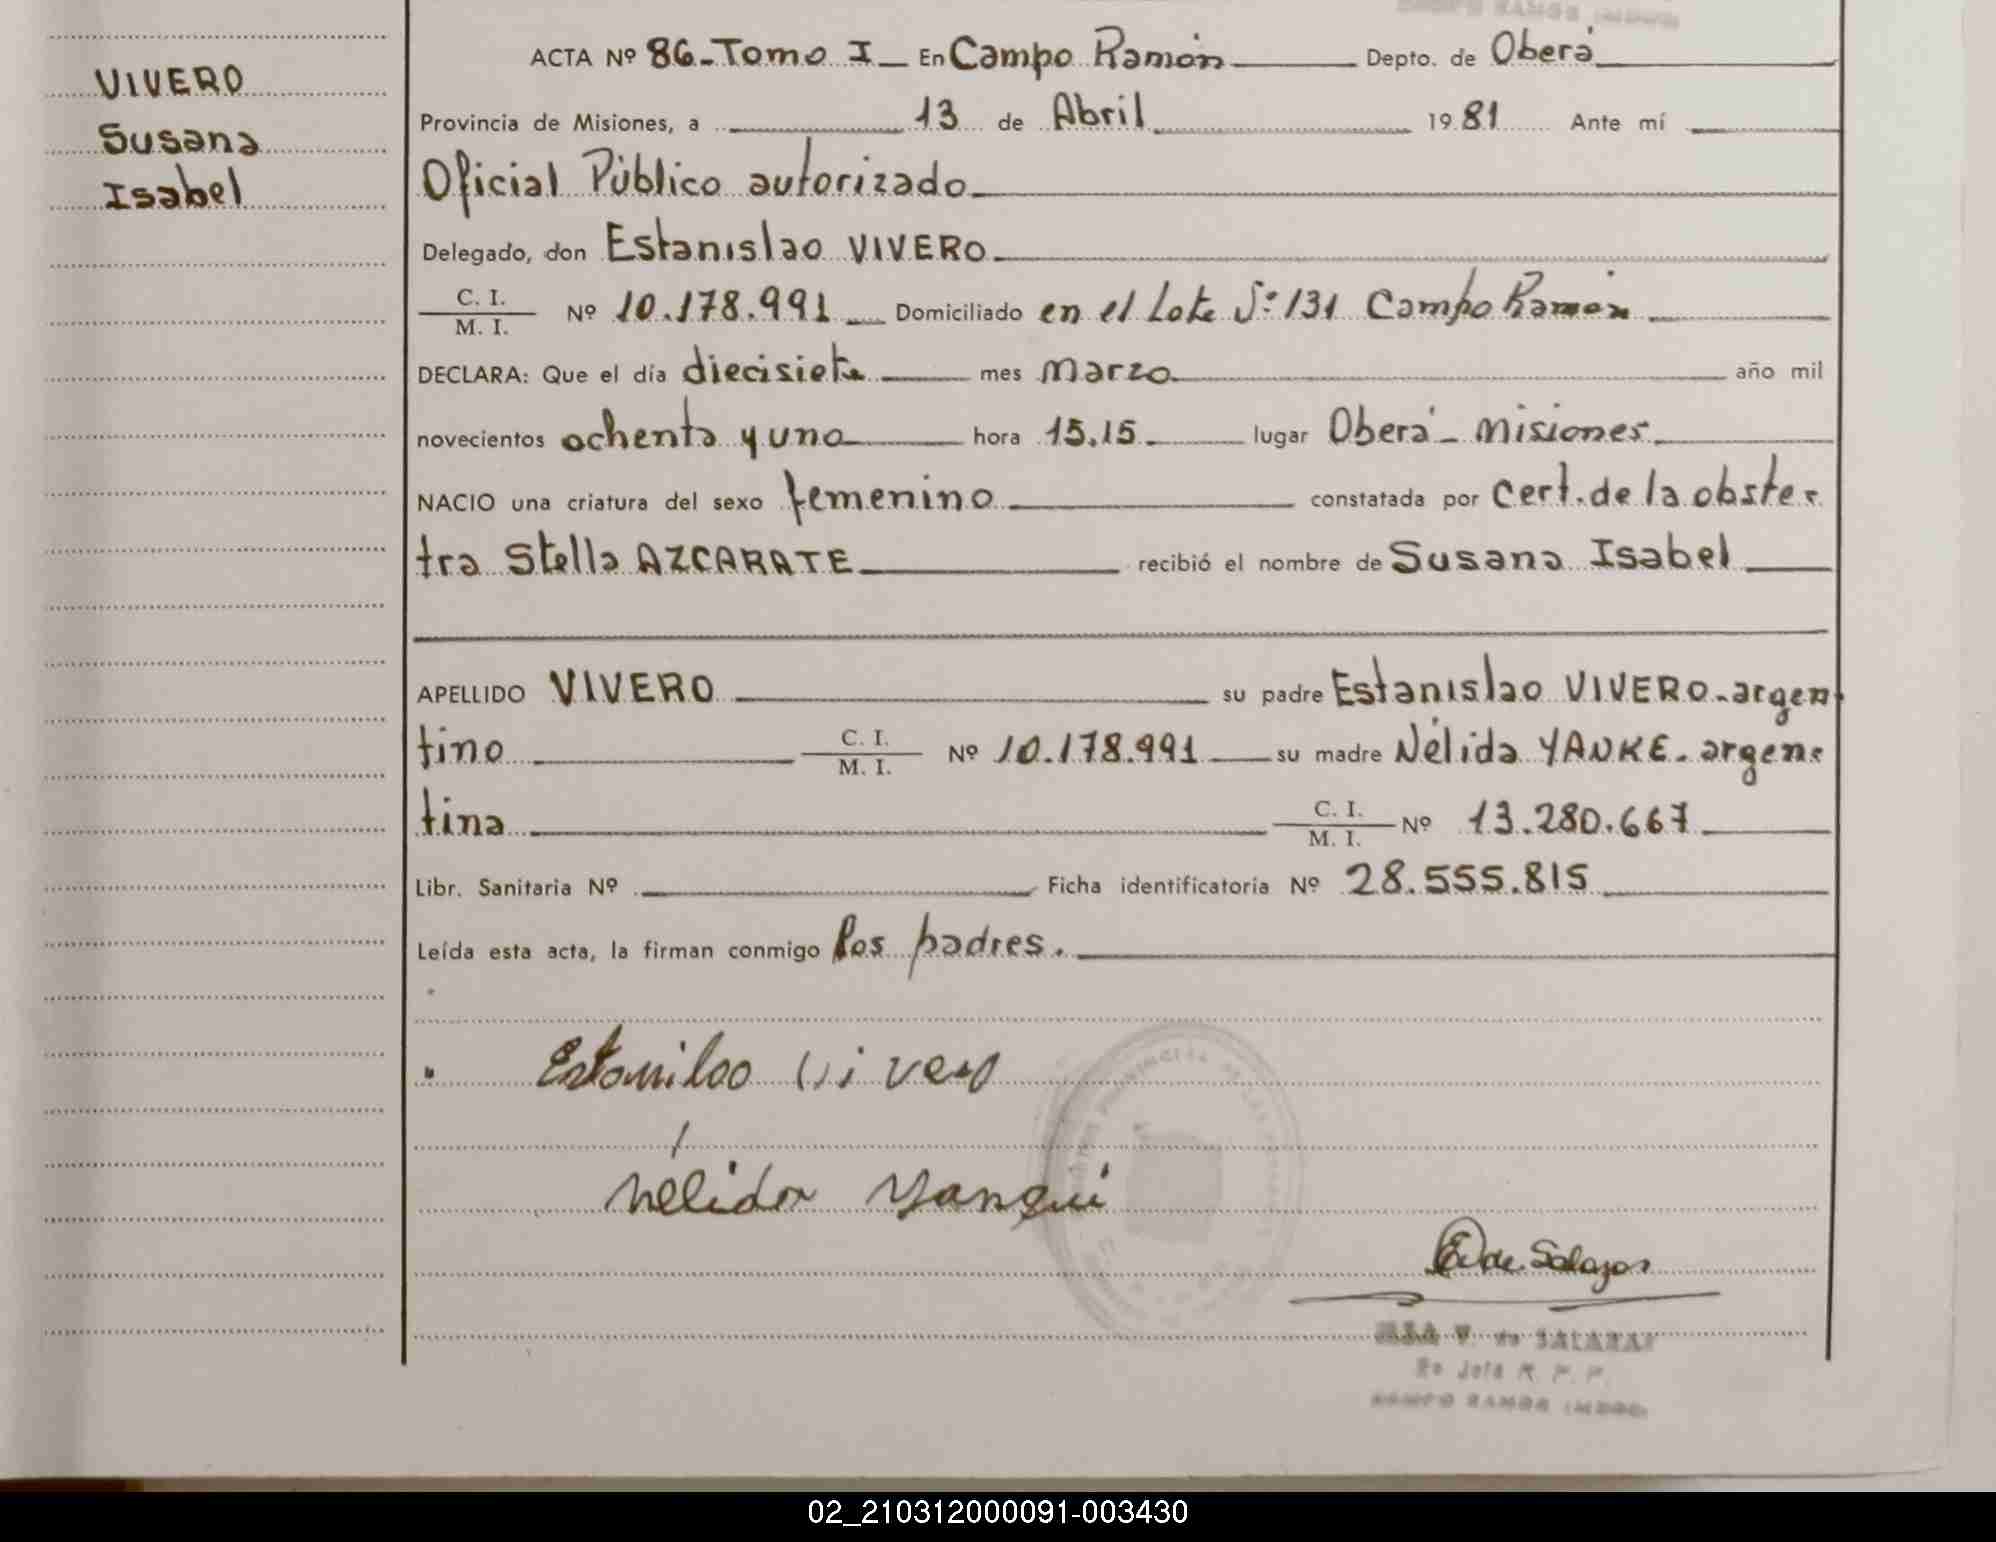 VIVERO
Susana
Isabel
ACTA Nº 86-Tomo I- En Campo Ramón Depto. de Oberá
Provincia de Misiones, a 13 de Abril 1981 Ante mí
Oficial Público autorizado
Delegado, don Estanislao VIVERO
C. I.
M. I. Nº 10.178.991 Domiciliado en el Lote Nº 131 Campo Ramón
DECLARA: Que el día diecisiete mes marzo año mil
novecientos ochenta y uno hora 15.15 lugar Oberá- Misiones
NACIO una criatura del sexo femenino constatada por Cert. de la obste-
tra Stella AZCARATE recibió el nombre de Susana Isabel
APELLIDO VIVERO su padre Estanislao VIVERO-argen
tino C. I. M. I. Nº 10.178.991 su madre Nélida YANKE- argen-
tina C. I. M. I. Nº 13.280.667
Libr. Sanitaria Nº Ficha identificatoria Nº 28.555.815
Leída esta acta, la firman conmigo los padres.
Estanilao Vivero
Nélida Yanqui
de Salazar
V. de SALAZAR
R. P. P.
CAMPO RAMON
02_210312000091-003430